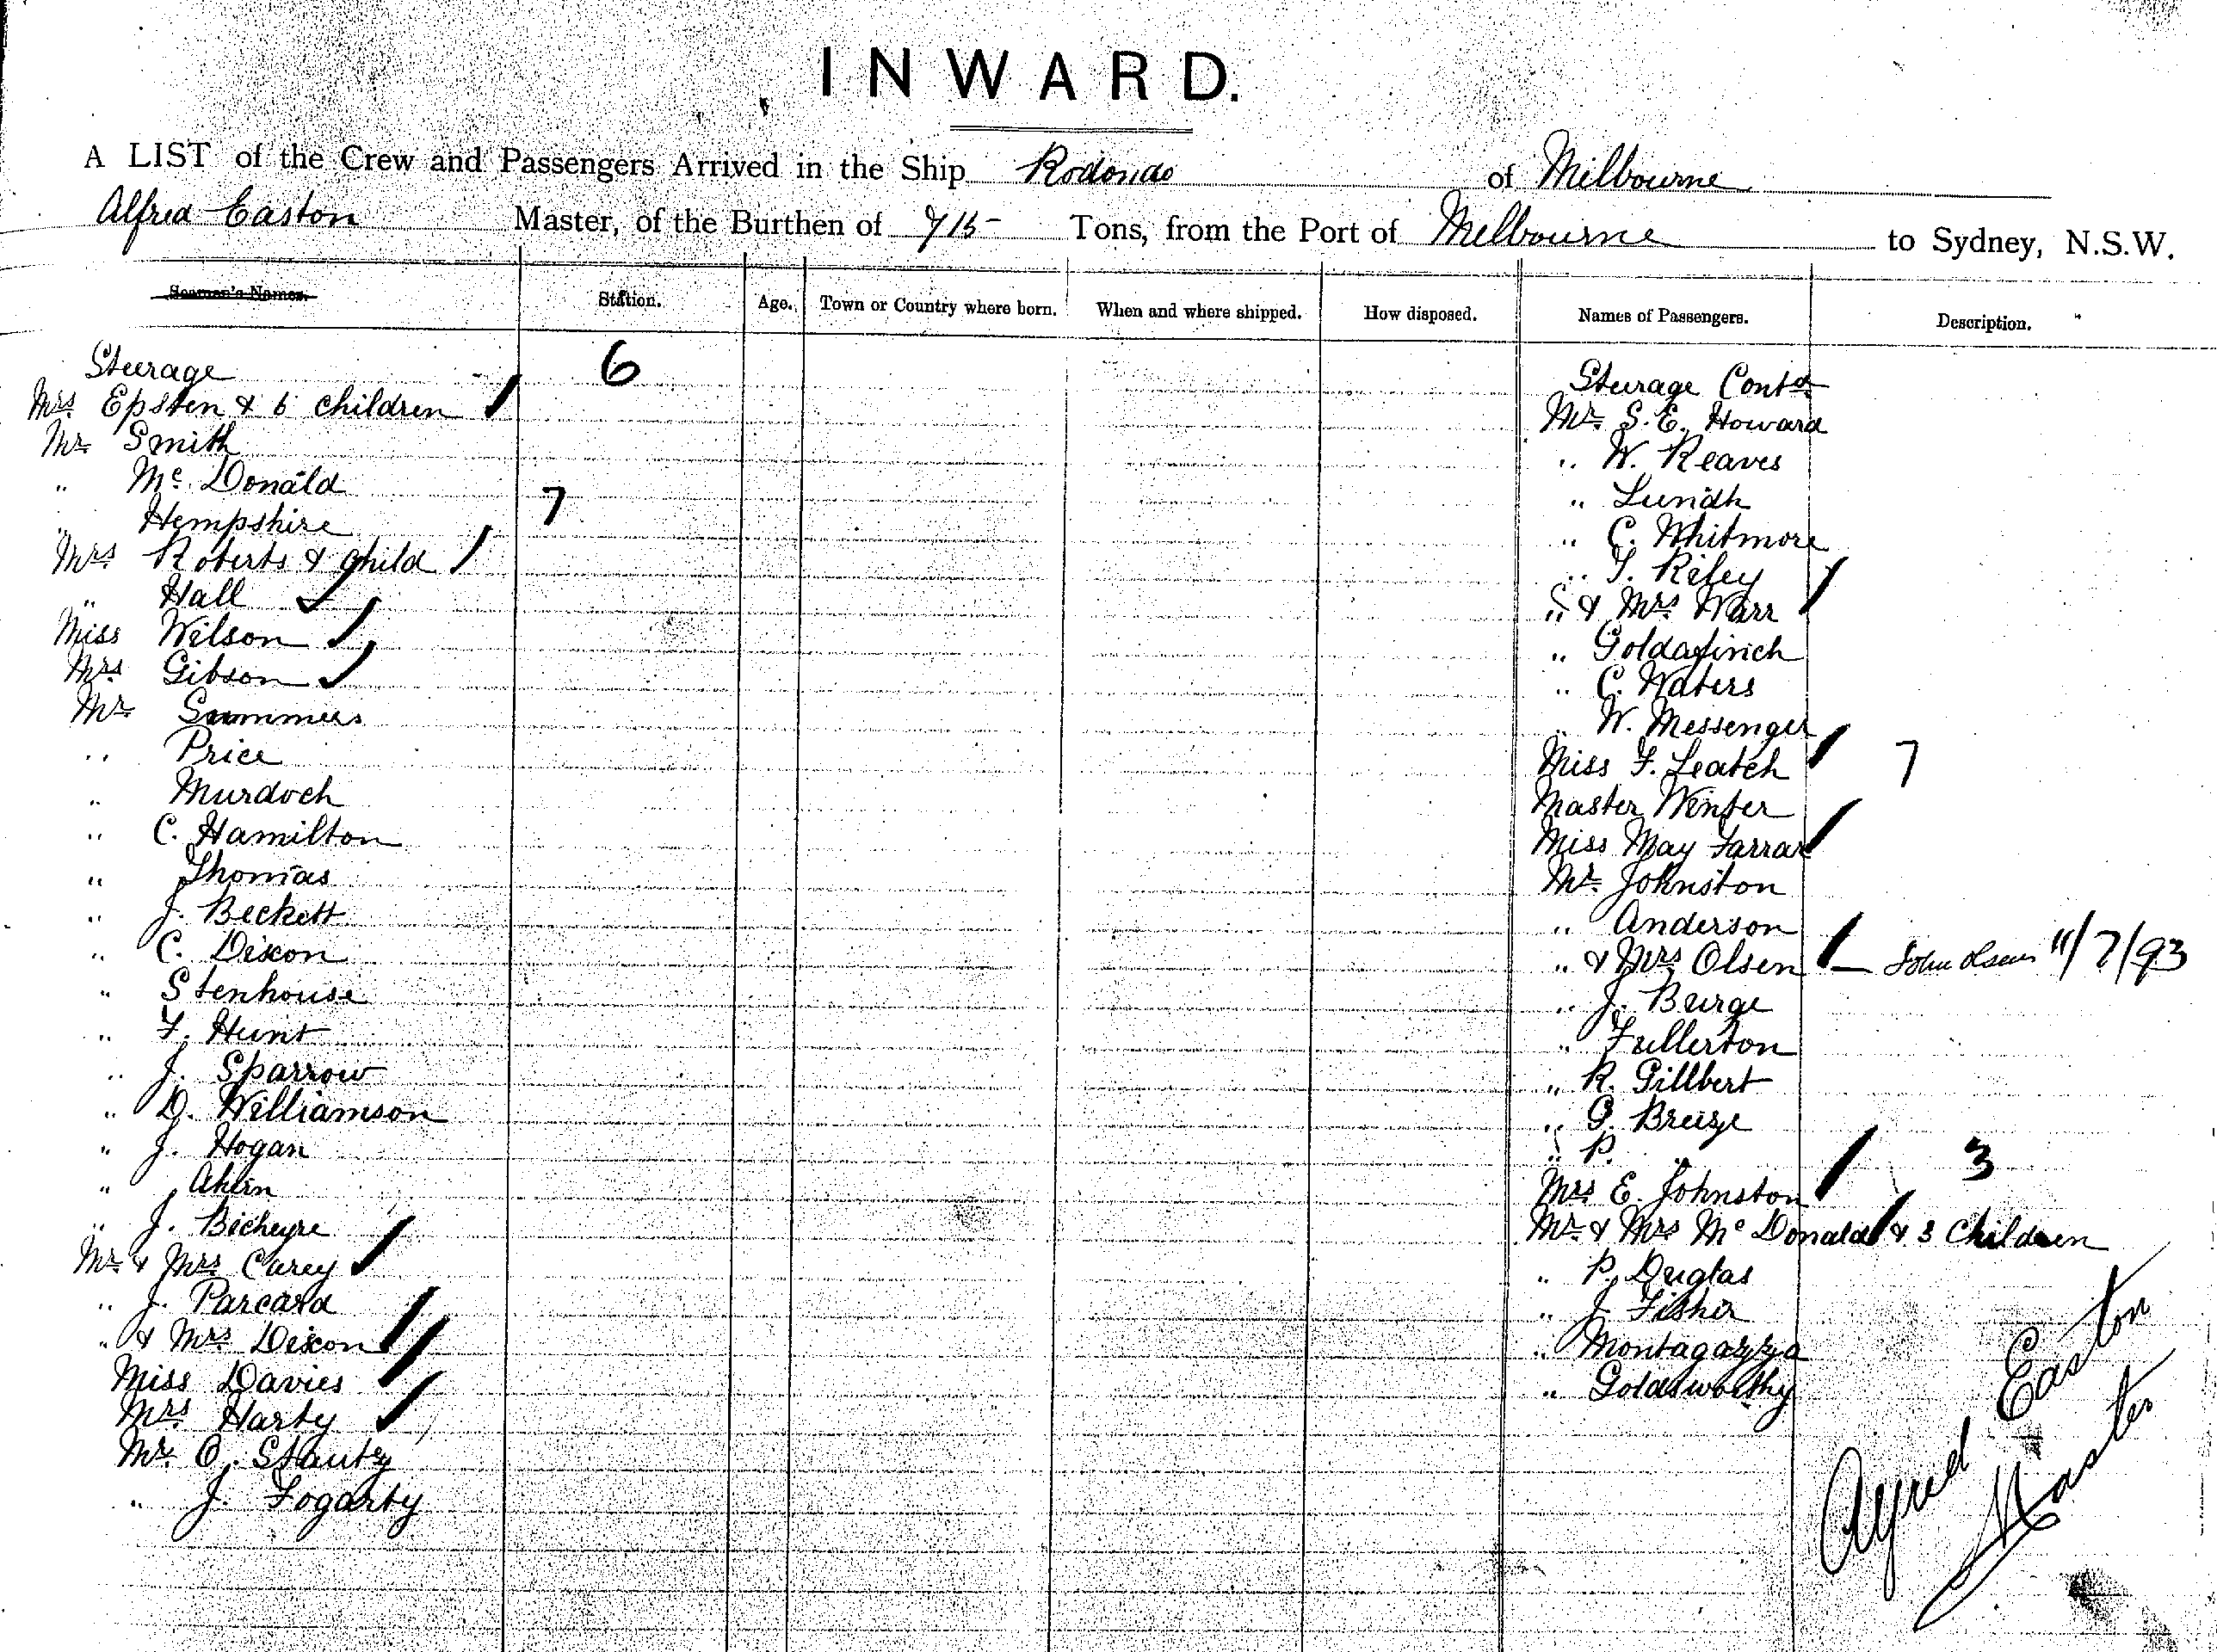 INWARD.
A LIST of the Crew and Passengers Arrived in the Ship Rodondo of Milbourne
Alfred Easton Master, of the Burthen of 715 - Tons, from the Port of Melbourne to Sydney, N.S.W.
Seamen's Names. Station. Age. Town or Country where born. When and where shipped. How disposed. Names of Passengers. Description.
Steerage 6
Mrs Epsten & 6 children
Mr Smith
" Mc Donald
" Hempshire 7
Mrs Roberts & child
" Hall
Miss Wilson
Mrs Gibson
Mr Summers
" Price
" Murdoch
" C. Hamilton
" Thomas
" J. Beckett
" C. Dixon
" Stenhouse
" F. Hunt
" J. Sparrow
" D. Williamson
" J. Hogan
" Ahlin
" J. Bicheyre
Mr & Mrs Carey
" J. Parcard
" & Mrs Dixon
Miss Davies
Mrs Harty
Mr O. Stautz
" J. Fogarty
Steerage Contd
Mr S. E. Howard
" W. Reaves
" Lundh
" C. Whitmore
" T. Riley
" & Mrs Warr
" Goldafinch
" C. Waters
" W. Messenger
Miss F. Leatch 7
Master Winter
Miss May Farrar
Mr Johnston
" Anderson
" & Mrs Olsen - John Olsen 11/7/93
" J. Burge
" Fullerton
" R. Gillbert
" G. Breeze
" P. "
Mrs E. Johnston 3
Mr & Mrs Mc Donald & 3 Children
" P. Duglas
" J. Fisher
" Montagazza
" Goldsworthy
Alfred Easton
Master